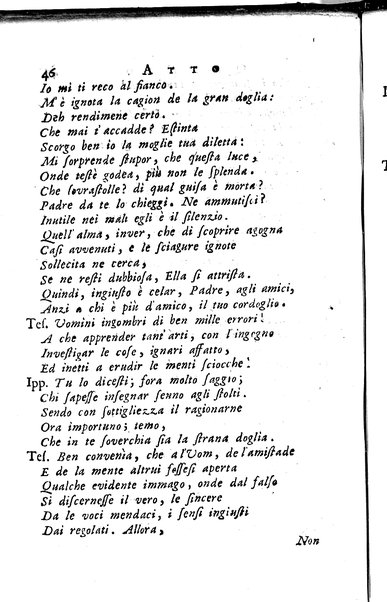 46 ATTO
Io mi ti reco al fianco.
M'è ignota la cagion de la gran doglia:
Deh rendimene certo.
Che mai t'accadde? Eſtinta
Scorgo ben io la moglie tua diletta:
Mi ſorprende ſtupor, che queſta luce,
Onde teſtè godea, più non le ſplenda.
Che ſovraſtolle? di qual guiſa è morta?
Padre da te lo chieggi. Ne ammutiſci?
Inutile nei mali egli è il ſilenzio.
Quell'alma, inver, che di ſcoprire agogna
Caſi avvenuti, e le ſciagure ignote
Sollecita ne cerca,
Se ne reſti dubbioſa, Ella ſi attriſta.
Quindi, ingiuſto è celar, Padre, agli amici,
Anzi a chi è più d'amico, il tuo cordoglio.
Teſ. Uomini ingombri di ben mille errori!
A che apprender tant'arti, con l'ingegno
Inveſtigar le coſe, ignari affatto,
Ed inetti a erudir le menti ſciocche!
Ipp. Tu lo diceſti; fora molto ſaggio;
Chi ſapeſſe inſegnar ſenno agli ſtolti.
Sendo con ſottigliezza il ragionarne
Ora importuno; temo,
Che in te ſoverchia ſia la ſtrana doglia.
Teſ. Ben convenìa, che a l'Uom, de l'amiſtade
E de la mente altrui feſſeſi aperta
Qualche evidente immago, onde dal falſo
Si diſcerneſſe il vero, le ſincere
Da le voci mendaci, i ſenſi ingiuſti
Dai regolati. Allora,
Non